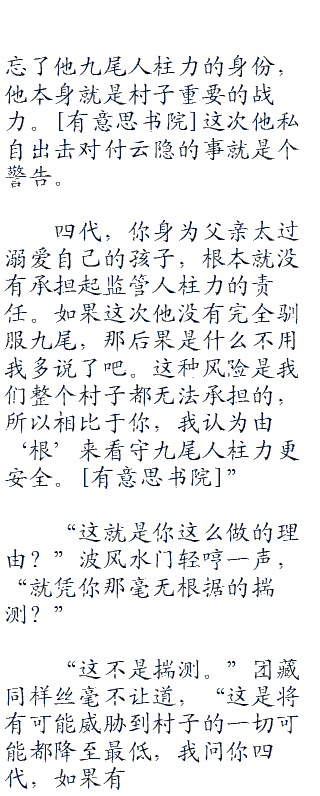 忘了他九尾人柱力的身份，
他本身就是村子重要的战
力。[有意思书院]这次他私
自出击对付云隐的事就是个
警告。
四代，你身为父亲太过
溺爱自己的孩子，根本就没
有承担起监管人柱力的责
任。如果这次他没有完全驯
服九尾，那后果是什么不用
我多说了吧。这种风险是我
们整个村子都无法承担的，
所以相比于你，我认为由
‘根’来看守九尾人柱力更
安全。[有意思书院]”
“这就是你这么做的理
由？”波风水门轻哼一声，
“就凭你那毫无根据的揣
测？”
“这不是揣测。”团藏
同样丝毫不让道，“这是将
有可能威胁到村子的一切可
能都降至最低，我问你四
代，如果有